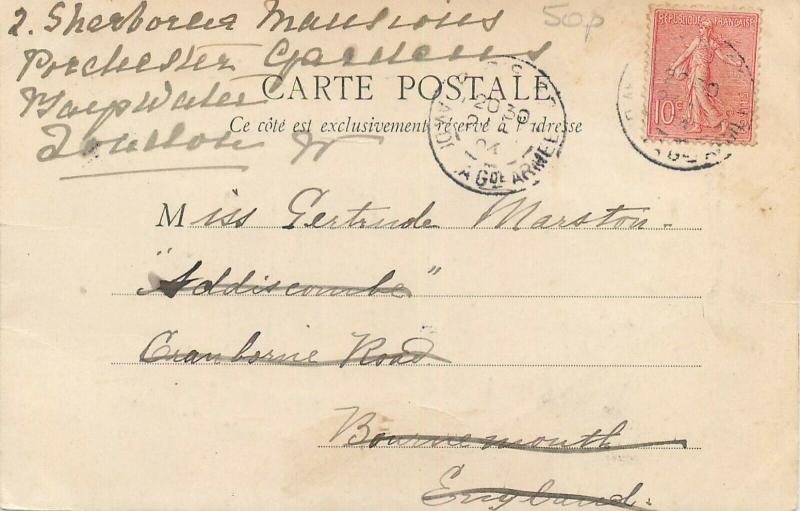 2. Sherborne Mansions
50p
Porchester Gardens
Bayswater
London W
REPUBLIQUE FRANÇAISE
10c
CARTE POSTALE
Ce côté est exclusivement réservé à l'adresse
AV. DE LA Gde ARMEE
Miss Gertrude Marston-
"Addiscombe"
Cranborne Road
Bournemouth
England.